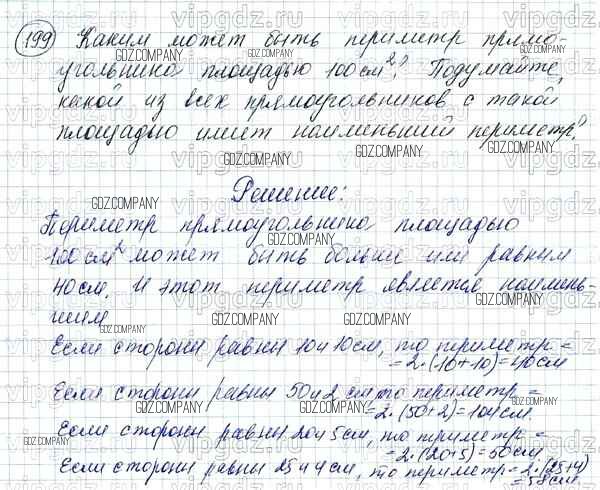 199 Каким может быть периметр прямо-
угольника площадью 100 см²? Подумайте,
какой из всех прямоугольников с такой
площадью имеет наименьший периметр?
Решение:
Периметр прямоугольника площадью
100 см² может быть больше или равным
40 см. И этот периметр является наимень-
шим
Если стороны равны 10 и 10 см, то периметр =
= 2·(10+10)=40 см
Если стороны равны 50 и 2 см, то периметр =
= 2·(50+2)=104 см.
Если стороны равны 20 и 5 см, то периметр =
= 2·(20+5)=50 см.
Если стороны равны 25 и 4 см, то периметр = 2·(25+4)
= 58 см.
vipgdz.com
GDZ.COMPANY